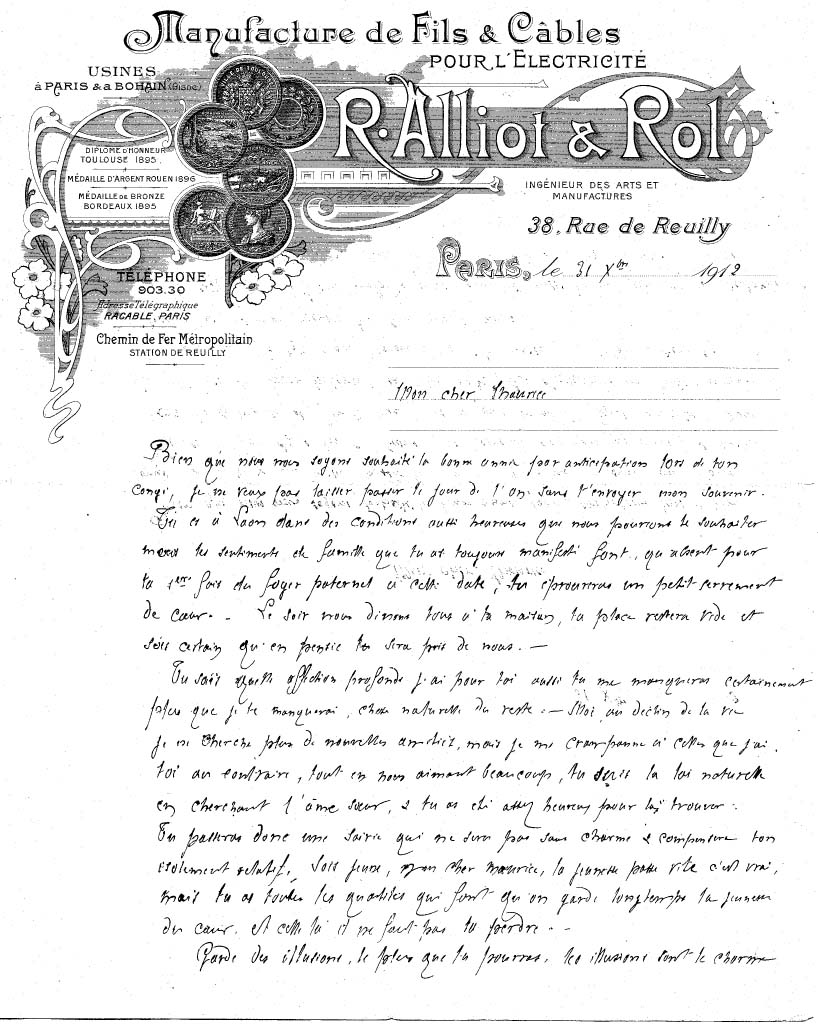 Manufacture de Fils & Câbles
POUR L'ELECTRICITÉ
USINES
à PARIS & a BOHAIN (Aisne)
R. Alliot & Rol
DIPLOME d'HONNEUR
TOULOUSE 1895.
MÉDAILLE D'ARGENT ROUEN 1896
MÉDAILLE DE BRONZE
BORDEAUX 1895
INGÉNIEUR DES ARTS ET
MANUFACTURES
38, Rue de Reuilly
PARIS, le 31 Xbre 1912
TÉLÉPHONE
903.30
Adresse Télégraphique
RACABLE, PARIS
Chemin de Fer Métropolitain
STATION DE REUILLY
Mon cher Maurice
Bien que nous nous soyons souhaité la bonne année par anticipation lors de ton
congé, je ne veux pas laisser passer le jour de l'An sans t'envoyer mon souvenir.
Tu es à Laon dans des conditions aussi heureuses que nous pouvions te souhaiter
mais tes sentiments de famille que tu as toujours manifesté font, qu'absent pour
la 1ère fois du foyer paternel à cette date, tu éprouveras un petit serrement
de cœur. - Le soir nous dinons tous à ta maison, ta place restera vide et
sois certain qu'en pensée tu sera près de nous. -
Tu sais quelle affection profonde j'ai pour toi aussi tu me manqueras certainement
plus que je te manquerai, chose naturelle du reste. - Moi, au déclin de la vie
je ne cherche plus de nouvelles amitiés, mais je me cramponne à celles que j'ai.
toi au contraire, tout en nous aimant beaucoup, tu suis la loi naturelle
en cherchant l'âme sœur, & tu as été assez heureux pour la trouver.
Tu passeras donc une soirée qui ne sera pas sans charme & compensera ton
isolement relatif. Sois jeune, mon cher Maurice, la jeunesse passe vite c'est vrai,
mais tu as toutes les qualités qui font qu'on garde longtemps la jeunesse
du cœur. et celle là il ne faut pas la perdre. -
Garde des illusions, le plus que tu pourras, les illusions sont le charme